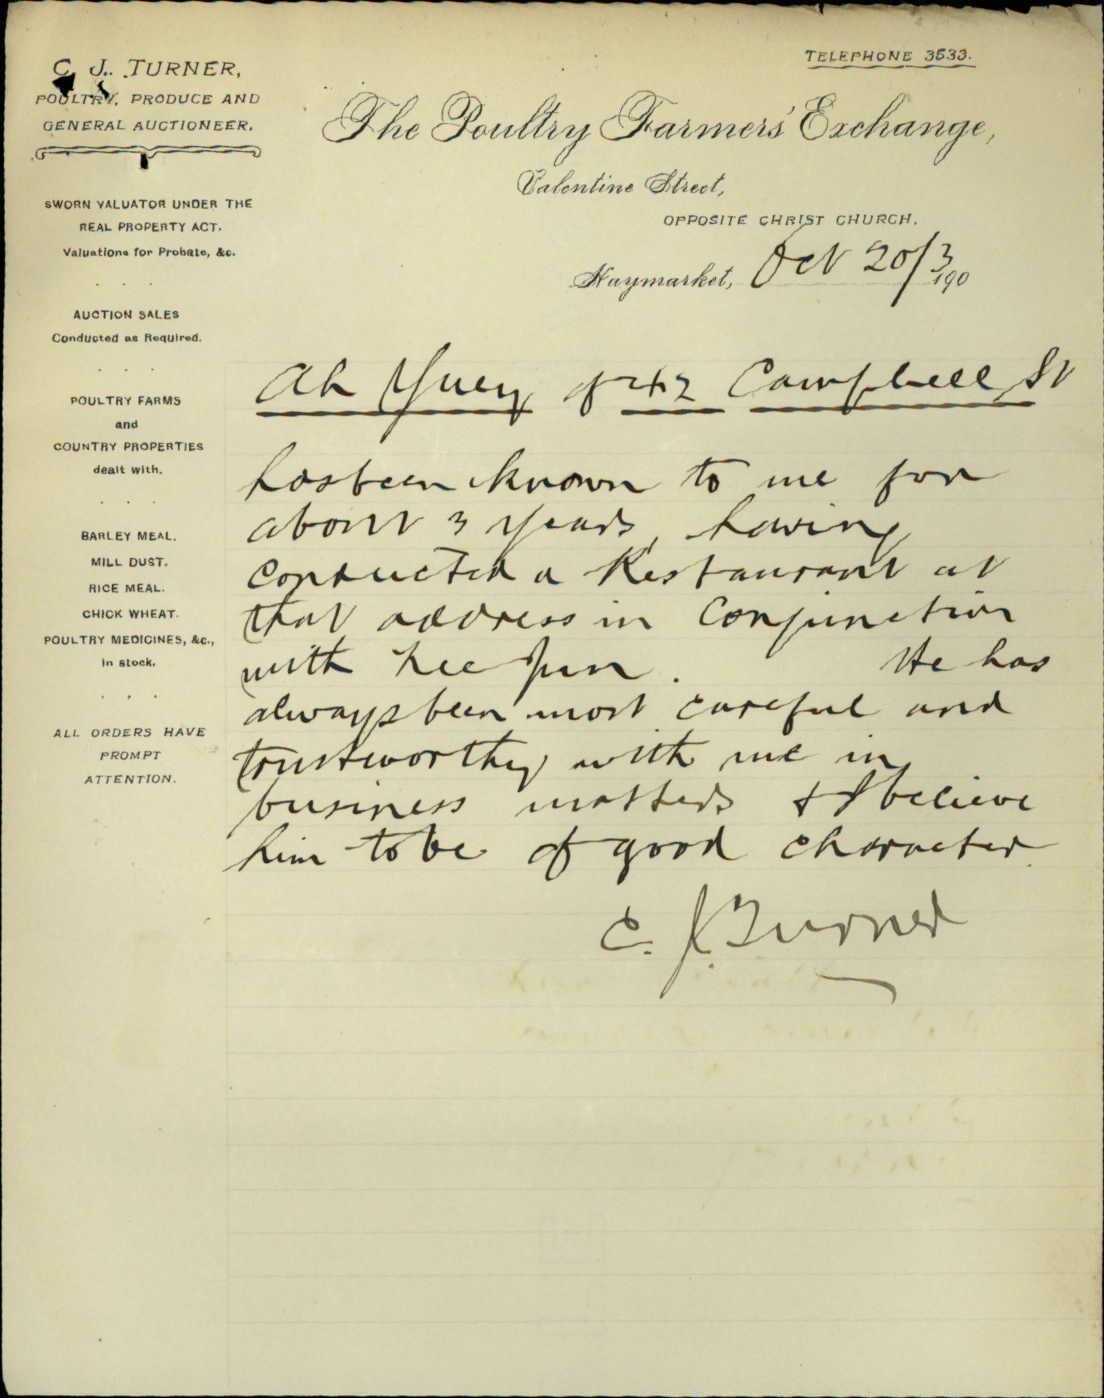 TELEPHONE 3533.
C. J. TURNER,
POULTRY, PRODUCE AND
GENERAL AUCTIONEER.
The Poultry Farmers' Exchange,
Valentine Street,
OPPOSITE CHRIST CHURCH.
Haymarket, Oct 20/3 190
SWORN VALUATOR UNDER THE
REAL PROPERTY ACT.
Valuations for Probate, &c.
AUCTION SALES
Conducted as Required.
POULTRY FARMS
and
COUNTRY PROPERTIES
dealt with.
BARLEY MEAL.
MILL DUST.
RICE MEAL.
CHICK WHEAT.
POULTRY MEDICINES, &c.,
in stock.
ALL ORDERS HAVE
PROMPT
ATTENTION.
Ah Yuey of 42 Campbell St
has been known to me for
about 3 years, having
conducted a Restaurant at
that address in Conjunction
with Lee Jun. He has
always been most careful and
trustworthy with me in
business matters & I believe
him to be of good character
C. J. Turner